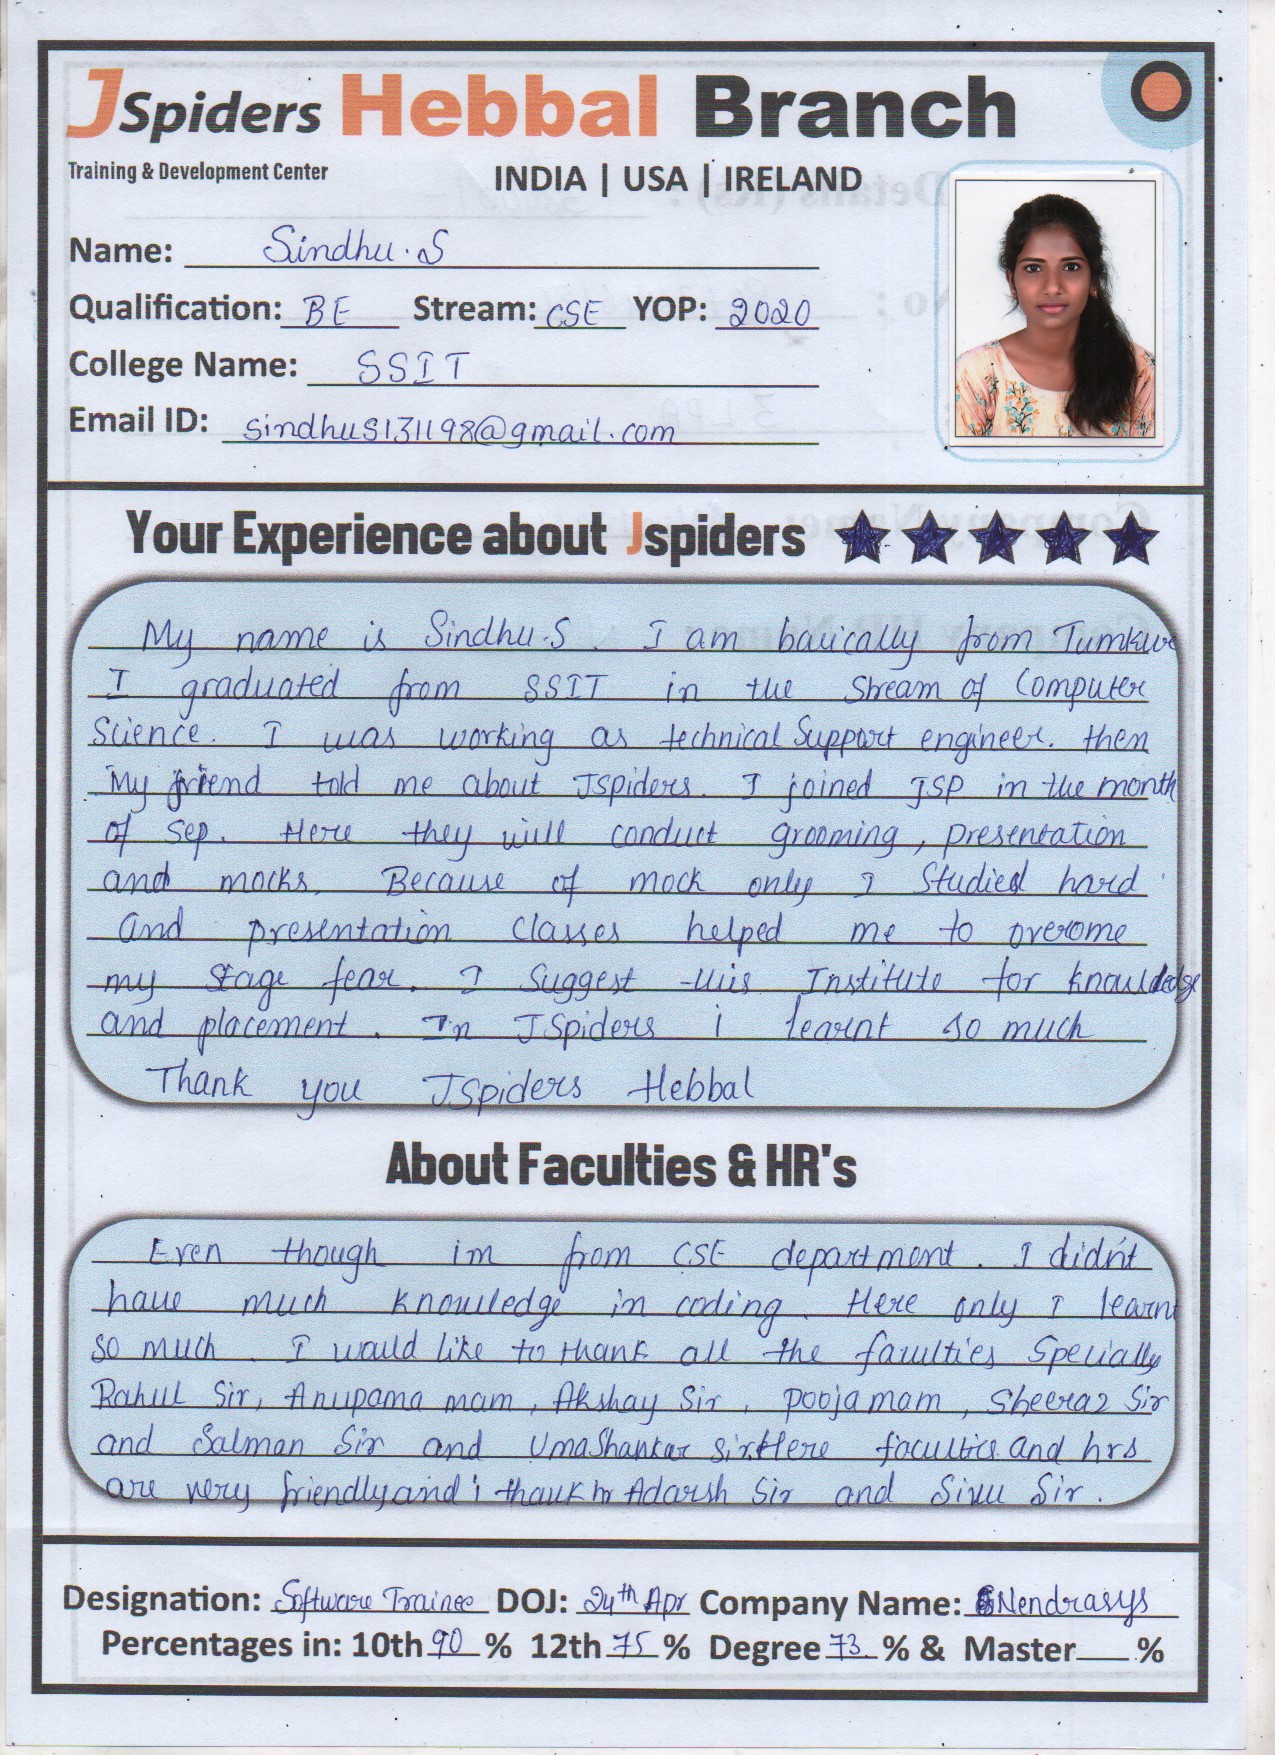 JSpiders Hebbal Branch
Training & Development Center
INDIA | USA | IRELAND
Name: Sindhu.S
Qualification: BE Stream: CSE YOP: 2020
College Name: SSIT
Email ID: sindhuS131198@gmail.com
Your Experience about Jspiders
My name is Sindhu.S. I am basically from Tumkur
I graduated from SSIT in the Stream of Computer
Science. I was working as technical Support engineer. then
My friend told me about JSpiders. I joined JSP in the month
of Sep. Here they will conduct grooming, presentation
and mocks. Because of mock only I Studied hard
and presentation classes helped me to overome
my Stage fear. I Suggest this Institute for knowldedge
and placement. In JSpiders i learnt so much
Thank you JSpiders Hebbal
About Faculties & HR's
Even though im from CSE department. I didn't
have much knowledge in coding. Here only I learnt
so much. I would like to thank all the faculties Specially
Rahul Sir, Anupama mam, Akshay Sir, pooja mam, Sheeraz Sir
and Salman Sir and UmaShankar Sir. Here faculties and hrs
are very friendly and i thank hr Adarsh Sir and Sinu Sir.
Designation: Software Trainee DOJ: 24th Apr Company Name: Nendrasys
Percentages in: 10th 90 % 12th 75 % Degree 73 % & Master %